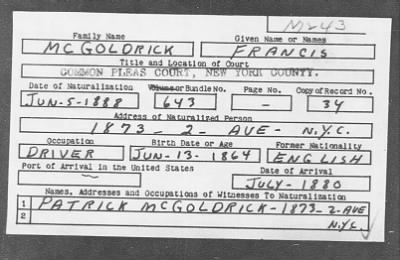 Family Name Given Name or Names
MCGOLDRICK FRANCIS
Title and Location of Court
COMMON PLEAS COURT, NEW YORK COUNTY.
Date of Naturalization Volume or Bundle No. Page No. Copy of Record No.
JUN-5-1888 643 - 34
Address of Naturalized Person
1873-2-AVE-N.Y.C.
Occupation Birth Date or Age Former Nationality
DRIVER JUN-13-1864 ENGLISH
Port of Arrival in the United States Date of Arrival
— JULY-1880
Names, Addresses and Occupations of Witnesses To Naturalization
1 PATRICK MCGOLDRICK-1873-2-AVE
2 N.Y.C.